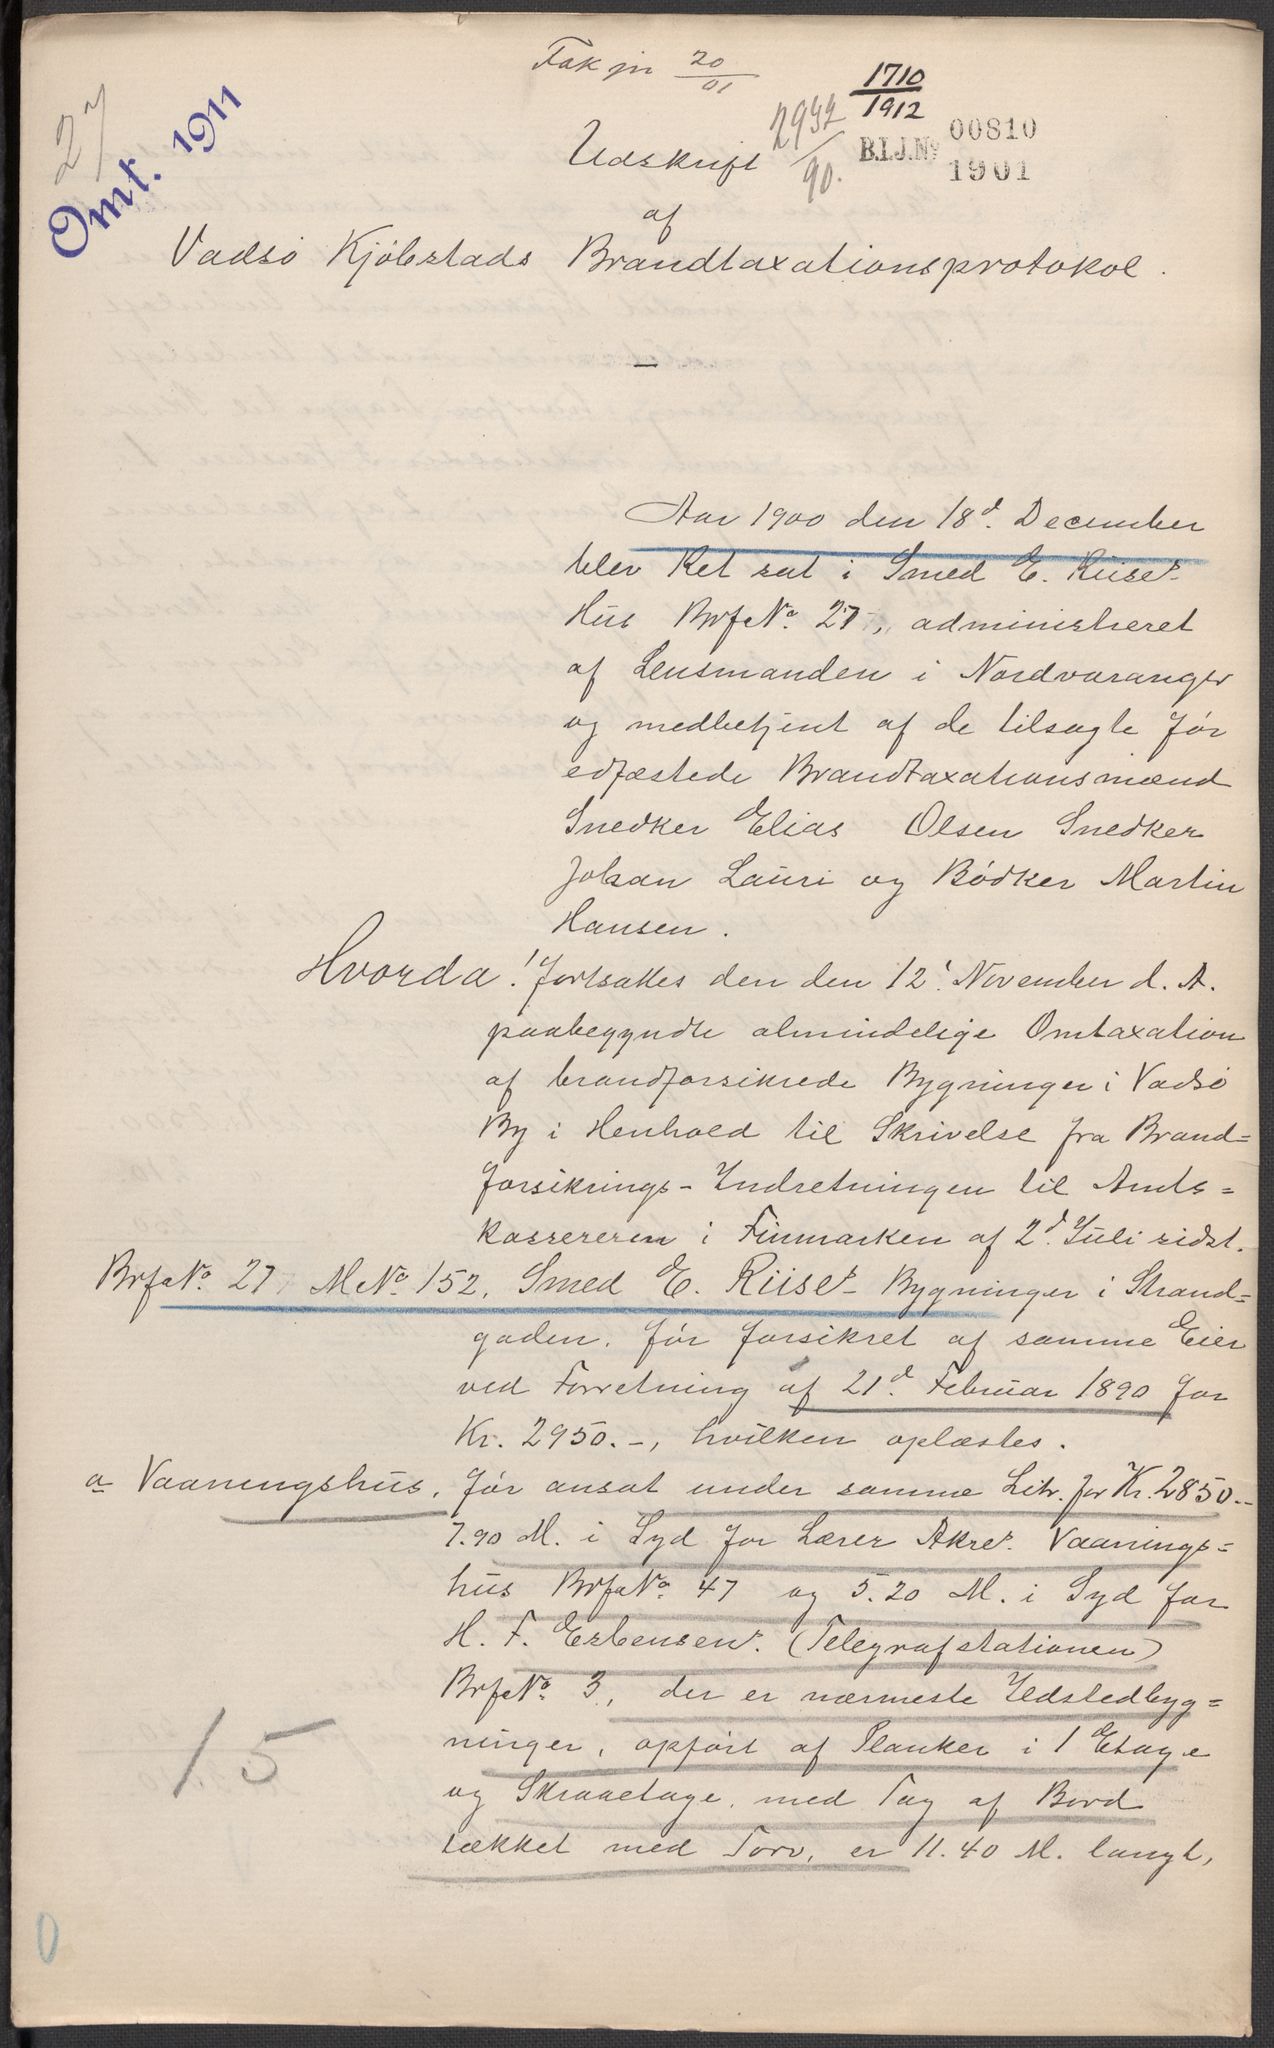 27
Omt. 1911
Tak jn 20/01
1710/1912
2932/90.
B.I.J.No 00810 1901
Udskrift
af
Vadsö Kjöbstads Brandtaxationsprotokol.
Aar 1900 den 18d. December
blev Ret sat i Smed E. Riises
Hus BrfNo. 27, administreret
af Lensmanden i Nordvaranger
og medbetjent af de tilsagte før
edfæstede Brandtaxationsmænd
Snedker Elias Olsen Snedker
Johan Lauri og Bödker Martin
Hansen.
Hvorda! fortsattes den den 12' November d. A.
paabegyndte almindelige Omtaxation
af brandforsikrede Bygninger i Vadsö
By i Henhold til Skrivelse fra Brand=
forsikrings-Indretningen til Amts=
kassereren i Finmarken af 2d. Juli sidst.
BrfNo. 27 MNo. 152. Smed E. Riises Bygninger i Strand=
gaden. før forsikret af samme Eier
ved Forretning af 21d. Februar 1890 for
Kr. 2950.-, hvilken oplæstes.
a Vaaningshus. før ansat under samme Litr. for Kr. 2850.-
7.90 M. i Syd for Lærer Akres Vaanings=
hus BrfNo. 47 og 5.20 M. i Syd for
H. F. Esbensens (Telegrafstationen)
BrfNo. 3, der er nærmeste Ildstedbyg=
ninger, opført af Planker i 1 Etage
og Skraaetage, med Tag af Bord
tækket med Torv, er 11.40 M. langt,
15
0